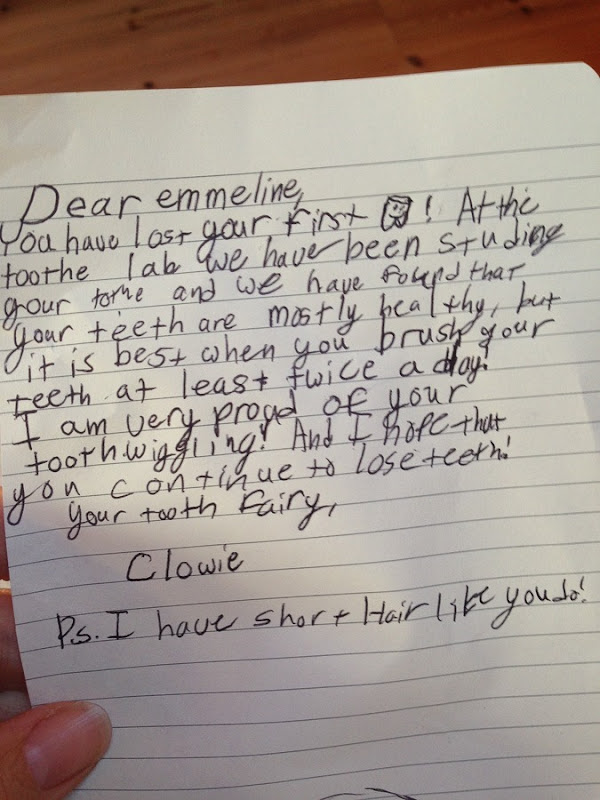 Dear emmeline,
You have lost your first ! At the
toothe lab we have been studing
your tothe and we have found that
your teeth are mostly healthy, but
it is best when you brush your
teeth at least twice a day!
I am very proud of your
tooth wiggling! And I hope that
you continue to lose teeth!
Your tooth fairy,
Clowie
P.s. I have short Hair like you do!